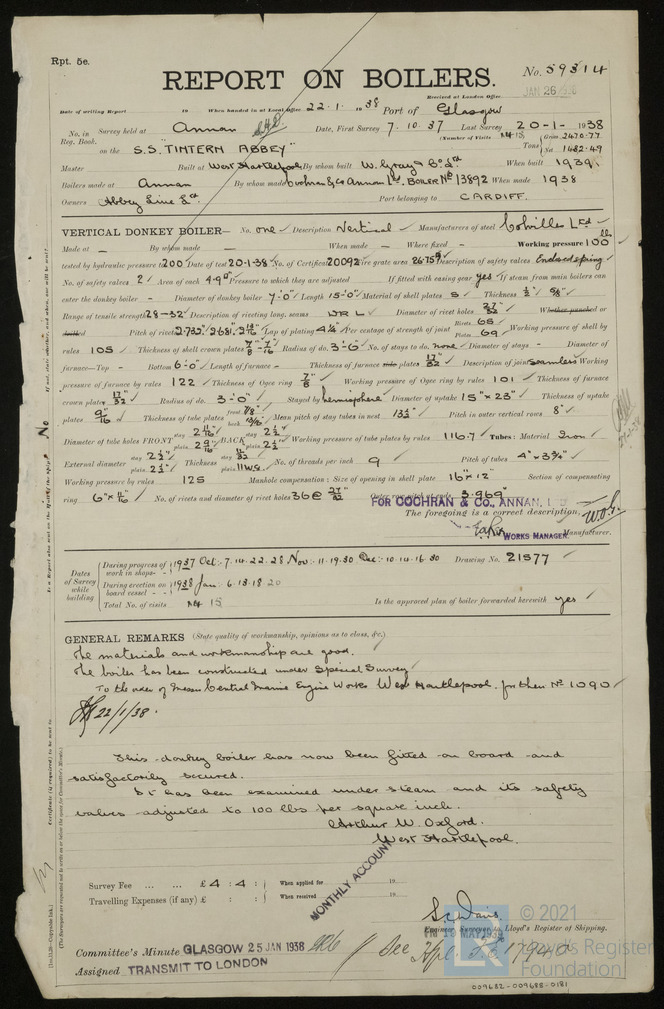 Rpt. 5e.
REPORT ON BOILERS.
No. 59314
JAN 26 1938
Received at London Office
Date of writing Report 19 When handed in at Local Office 22.1.1938 Port of Glasgow
No. in Reg. Book. Survey held at Annan Date, First Survey 7.10.37 Last Survey 20-1-1938
(Number of Visits 15)
on the S.S. "TINTERN ABBEY" Tons Gross 2470.77 Net 1482.49
Master Built at West Hartlepool By whom built W. Gray & Co. Ltd. When built 1939
Boilers made at Annan By whom made Cochran & Co Annan Ltd. Boiler No 13892 When made 1938
Owners Abbey Line Ltd. Port belonging to CARDIFF.
VERTICAL DONKEY BOILER— No. one Description Vertical Manufacturers of steel Colvilles Ltd
Made at - By whom made - When made - Where fixed - Working pressure 100 lb.
tested by hydraulic pressure to 200 Date of test 20-1-38 No. of Certificate 20092 Fire grate area 26.75 Description of safety valves Enclosed spring
No. of safety valves 2 Area of each 4.9 Pressure to which they are adjusted If fitted with easing gear yes If steam from main boilers can
enter the donkey boiler - Diameter of donkey boiler 7'-0" Length 15'-0" Material of shell plates S Thickness 1/2" 5/8"
Range of tensile strength 28-32 Description of riveting long. seams DRL Diameter of rivet holes 27/32 Whether punched or
drilled Pitch of rivets 2.732" 2.631" Lap of plating 4 1/4" Per centage of strength of joint Rivets 65 Plates 69 Working pressure of shell by
rules 105 Thickness of shell crown plates Radius of do. 3'-6" No. of stays to do. none Diameter of stays - Diameter of
furnace—Top - Bottom 6'-0" Length of furnace - Thickness of furnace plates 17/32 Description of joint Seamless Working
pressure of furnace by rules 122 Thickness of Ogee ring 7/8 Working pressure of Ogee ring by rules 101 Thickness of furnace
crown plates 17/32 Radius of do. 3'-0" Stayed by hemisphere Diameter of uptake 15" x 23" Thickness of uptake
plates 9/16 Thickness of tube plates front 7/8" back 13/16" Mean pitch of stay tubes in nest 13 1/2 Pitch in outer vertical rows 8"
Diameter of tube holes FRONT stay 2 11/16" plain 2 9/16" BACK stay 2 1/2" plain 2 1/2" Working pressure of tube plates by rules 116.7 Tubes: Material Iron
External diameter stay 2 1/2" plain 2 1/2" Thickness 11 W.G. No. of threads per inch 9 Pitch of tubes 4" x 3 3/4"
Working pressure by rules 125 Manhole compensation: Size of opening in shell plate 16" x 12" Section of compensating
ring 6" x 11/16" No. of rivets and diameter of rivet holes 36 @ 27/32 Outer row pitch at ends 3.969"
FOR COCHRAN & CO., ANNAN, LTD
The foregoing is a correct description,
WORKS MANAGER. Manufacturer.
Dates of Survey while building
During progress of work in shops - - 1937 Oct: 7.14.22.28 Nov: 11.19.30 Dec: 10.14.16.30 Drawing No. 21577
During erection on board vessel - - 1938 Jan: 6.13.18 20
Total No. of visits 15 Is the approved plan of boiler forwarded herewith yes
GENERAL REMARKS (State quality of workmanship, opinions as to class, &c.)
The materials and workmanship are good.
The boiler has been constructed under Special Survey
To the order of Messrs Central Marine Engine Works West Hartlepool, for their No 1090
22/1/38.
This donkey boiler has now been fitted on board and
satisfactorily secured.
It has been examined under steam and its safety
valves adjusted to 100 lbs per square inch.
Arthur W. Oxford.
West Hartlepool.
Survey Fee ... ... £ 4 : 4 : When applied for 19
Travelling Expenses (if any) £ : : When received 19
MONTHLY ACCOUNT
S. Davis.
Engineer Surveyor to Lloyd's Register of Shipping.
FRI 19 MAY 1939
Committee's Minute GLASGOW 25 JAN 1938
Assigned TRANSMIT TO LONDON
See Hpl. Rpt 17940
© 2021
Lloyds Register
Foundation
009682-009688-0181